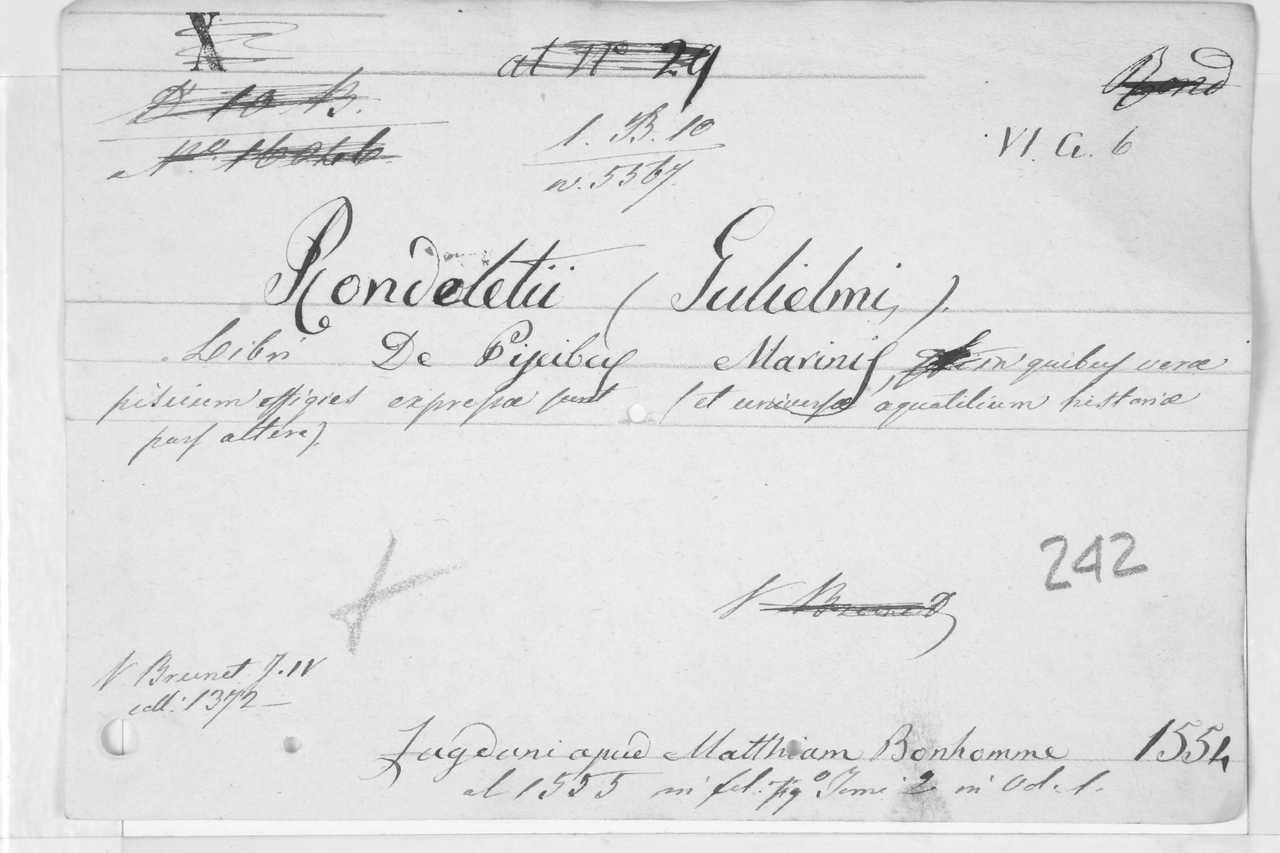 X
at N° 29
Rond
D 10 B.
N.° 16046
1. B. 10
n. 5567.
VI. G. 6
Rondeletii (Gulielmi,).
Libri De Piscibus Marinis, in quibus veræ
piscium effigies expressæ sunt (et universæ aquatilium historiæ
pars altera)
242
V Brunet
V. Brunet T. IV
coll: 1372 —
Lugduni apud Matthiam Bonhomme 1554
al 1555 in fol: fig.° Tomi 2 in Vol. 1.